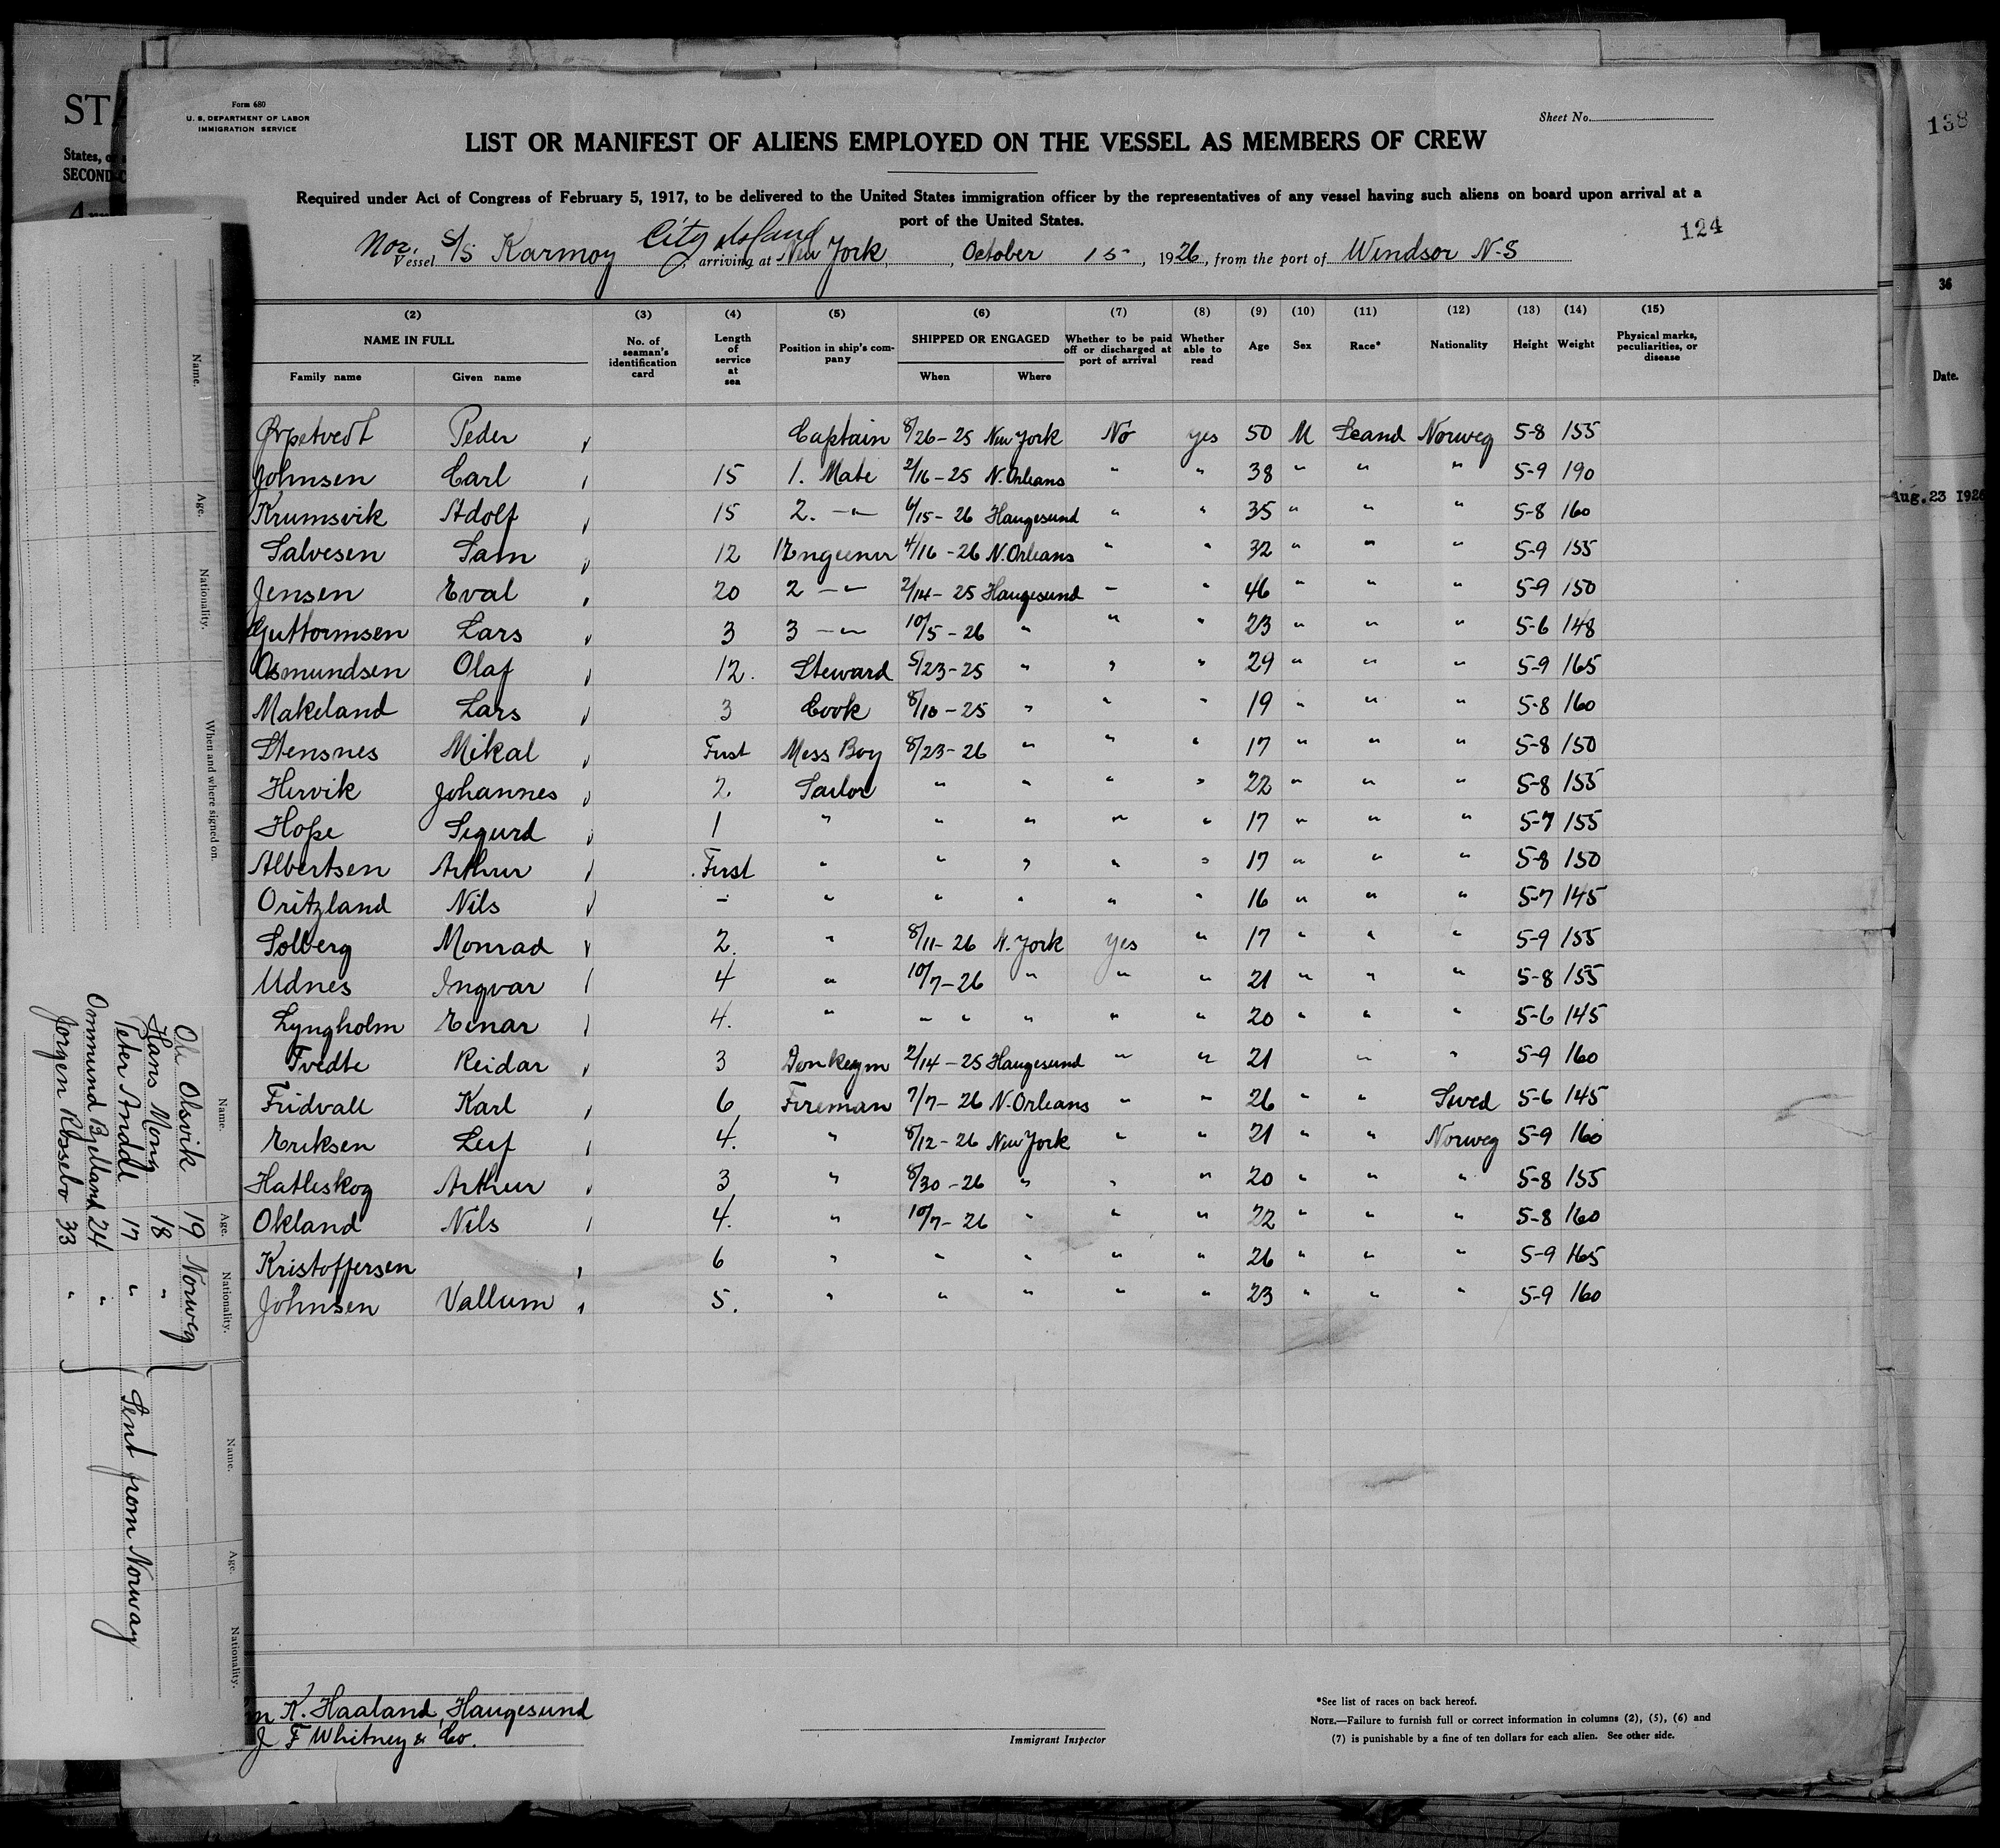 STA
States, or
SECOND-C
Form 680
U. S. DEPARTMENT OF LABOR
IMMIGRATION SERVICE
Sheet No.
138
LIST OR MANIFEST OF ALIENS EMPLOYED ON THE VESSEL AS MEMBERS OF CREW
Required under Act of Congress of February 5, 1917, to be delivered to the United States immigration officer by the representatives of any vessel having such aliens on board upon arrival at a
port of the United States.
124
City Island
Nor. Vessel S/S Karmoy, arriving at New York, October 15, 1926, from the port of Windsor N-S
(2) (3) (4) (5) (6) (7) (8) (9) (10) (11) (12) (13) (14) (15)
NAME IN FULL No. of seaman's identification card Length of service at sea Position in ship's company SHIPPED OR ENGAGED Whether to be paid off or discharged at port of arrival Whether able to read Age Sex Race* Nationality Height Weight Physical marks, peculiarities, or disease
Family name Given name When Where
Ørpetvedt Peder Captain 8/26-25 New York No yes 50 M Scand Norweg 5-8 155
Johnsen Carl 15 1. Mate 2/16-25 N. Orleans " " 38 " " " 5-9 190
Krumsvik Adolf 15 2. -"- 6/15-26 Haugesund " " 35 " " " 5-8 160
Salvesen Sam 12 1 Engineer 4/16-26 N. Orleans " " 32 " " " 5-9 155
Jensen Eval 20 2 -"- 2/14-25 Haugesund " " 46 " " " 5-9 150
Guttormsen Lars 3 3 -"- 10/5-26 " " " 23 " " " 5-6 148
Osmundsen Olaf 12. Steward 5/23-25 " " " 29 " " " 5-9 165
Makeland Lars 3 Cook 8/10-25 " " " 19 " " " 5-8 160
Stensnes Mikal First Mess Boy 8/23-26 " " " 17 " " " 5-8 150
Hervik Johannes 2. Sailor " " " " 22 " " " 5-8 155
Hope Sigurd 1 " " " " " 17 " " " 5-7 155
Albertsen Arthur First " " " " " 17 " " " 5-8 150
Oritzland Nils - " " " " " 16 " " " 5-7 145
Solberg Monrad 2. " 8/11-26 N. York yes " 17 " " " 5-9 155
Udnes Ingvar 4 " 10/7-26 " " " 21 " " " 5-8 155
Lyngholm Einar 4. " - " " " " 20 " " " 5-6 145
Tvedte Reidar 3 Donkeym 2/14-25 Haugesund " " 21 " " 5-9 160
Fridvall Karl 6 Fireman 7/7-26 N. Orleans " " 26 " " Swed 5-6 145
Eriksen Leif 4. " 8/12-26 New York " " 21 " " Norweg 5-9 160
Hatleskog Arthur 3 " 8/30-26 " " " 20 " " " 5-8 155
Okland Nils 4. " 10/7-26 " " " 22 " " " 5-8 160
Kristoffersen 6 " " " " " 26 " " " 5-9 165
Johnsen Vallum 5. " " " " " 23 " " " 5-9 160
K. Haaland, Haugesund
J F Whitney & Co.
Immigrant Inspector
*See list of races on back hereof.
NOTE.—Failure to furnish full or correct information in columns (2), (5), (6) and
(7) is punishable by a fine of ten dollars for each alien. See other side.
Name. Age. Nationality. When and where signed on.
Name. Age. Nationality.
Ole Olsvik 19 Norweg
Hans Mong 18 "
Peter Anddl 17 "
Ommund Bjelland 24 "
Jorgen Rossebo 33 "
Sent from Norway
Name. Age. Nationality.
36
Date.
Aug. 23 1926